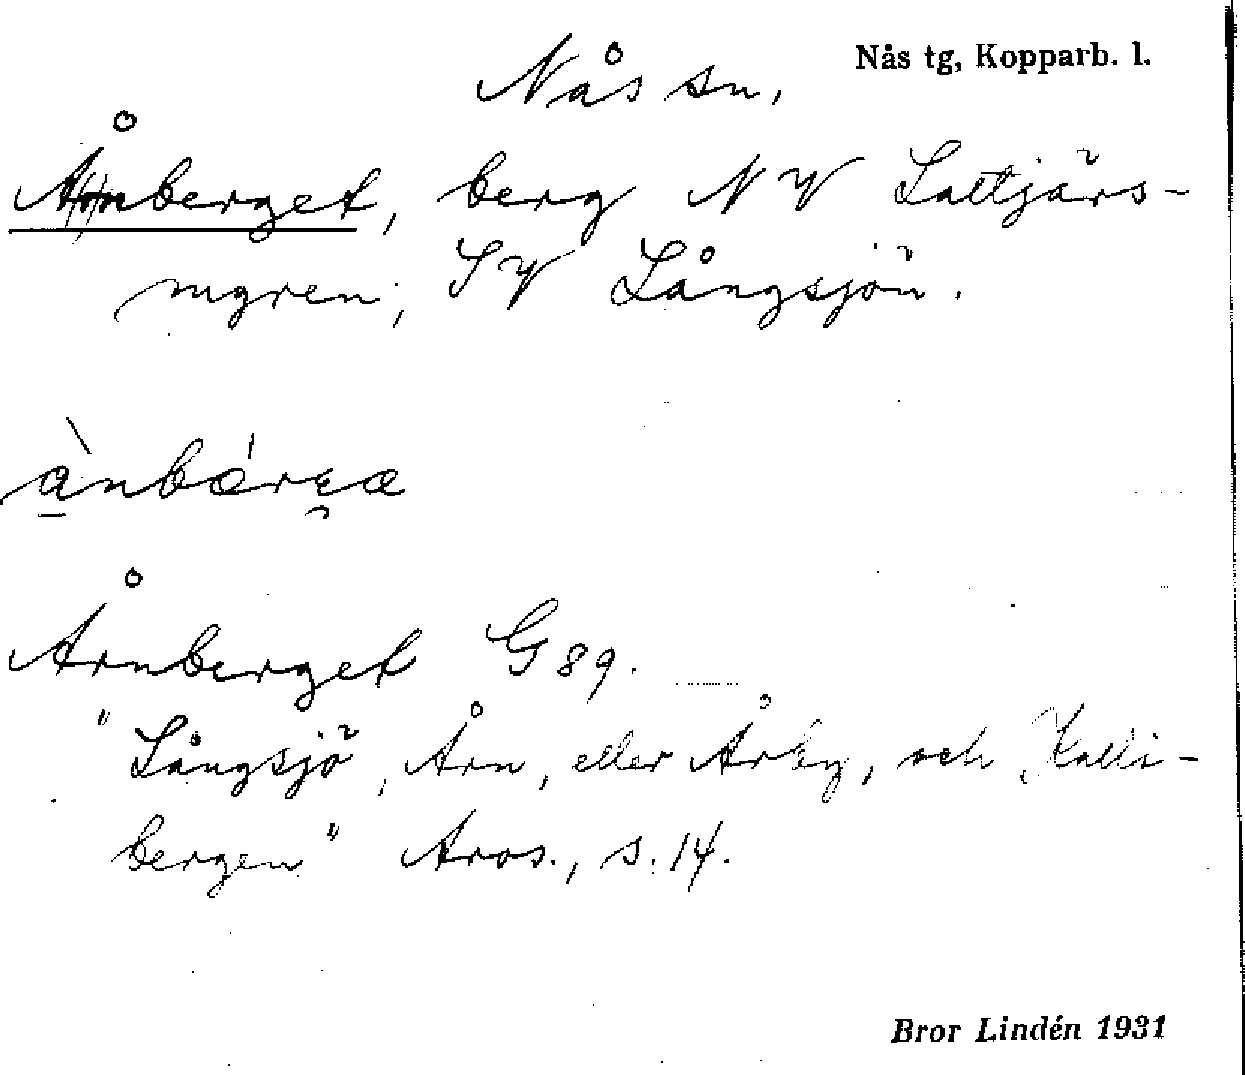 Nås tg, Kopparb. l.
Nås sn.
Ånberget, berg NV Saltjärs-
myren, SV Långsjön.
ànbǽrɡa
Årnberget G 89.
"Långsjö, Årn, eller Årby, och Kalli-
bergen" Aros., s. 14.
Bror Lindén 1931